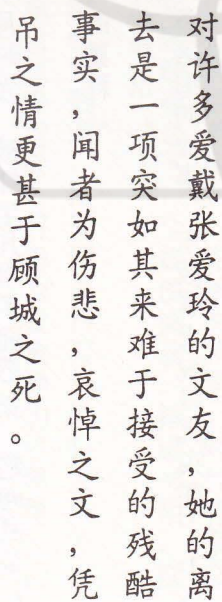 对许多爱戴张爱玲的文友，她的离
去是一项突如其来难于接受的残酷
事实，闻者为伤悲，哀悼之文，凭
吊之情更甚于顾城之死。